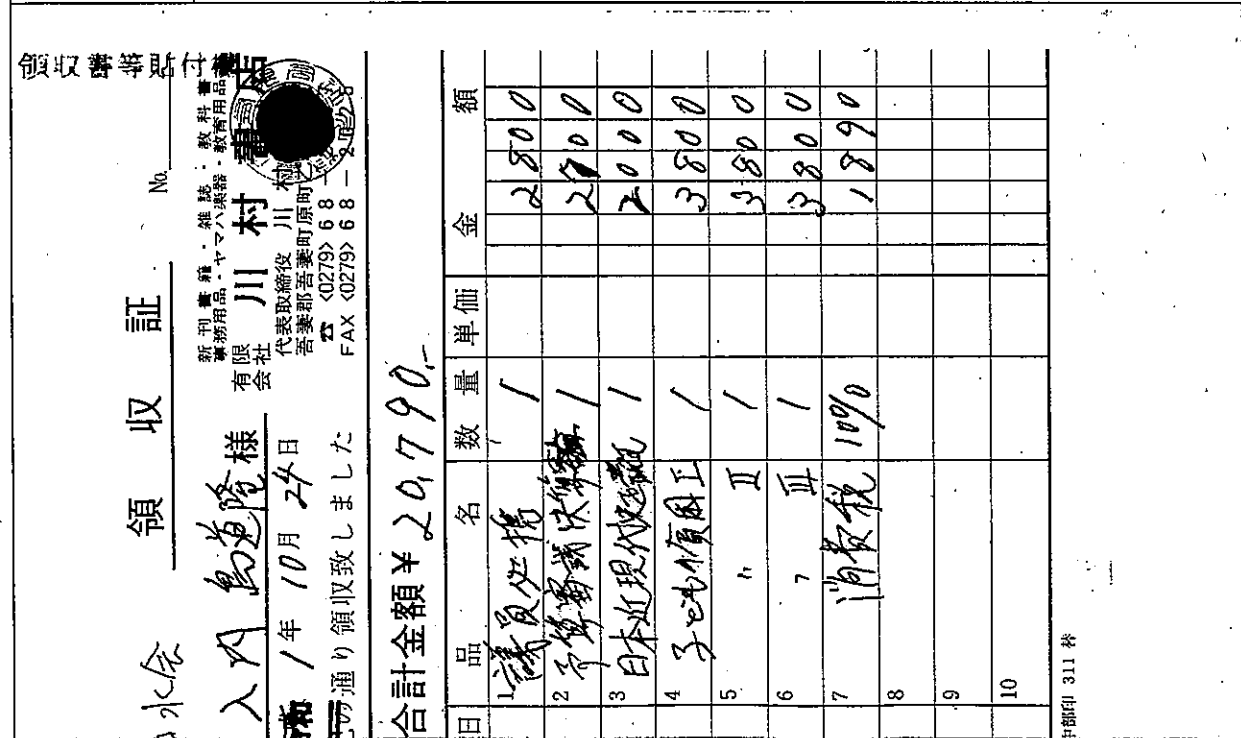 領収書等貼付
領収証 No.
入内島道隆様
1年10月24日
の通り領収致しました
新刊書籍・雑誌・教科書
事務用品・ヤマハ楽器・教育用品
有限会社 川村書店
代表取締役 川村
吾妻郡吾妻町原町
☎ <0279> 68-
FAX <0279> 68-
合計金額¥20,790.-
日 品名 数量 単価 金額
1 議員必携 1 2800
2 1
3 1 2000
4 1 3800
5 〃 II 1 3800
6 〃 III 1 3800
7 消費税 10% 1890
8
9
10
中部印 311 替